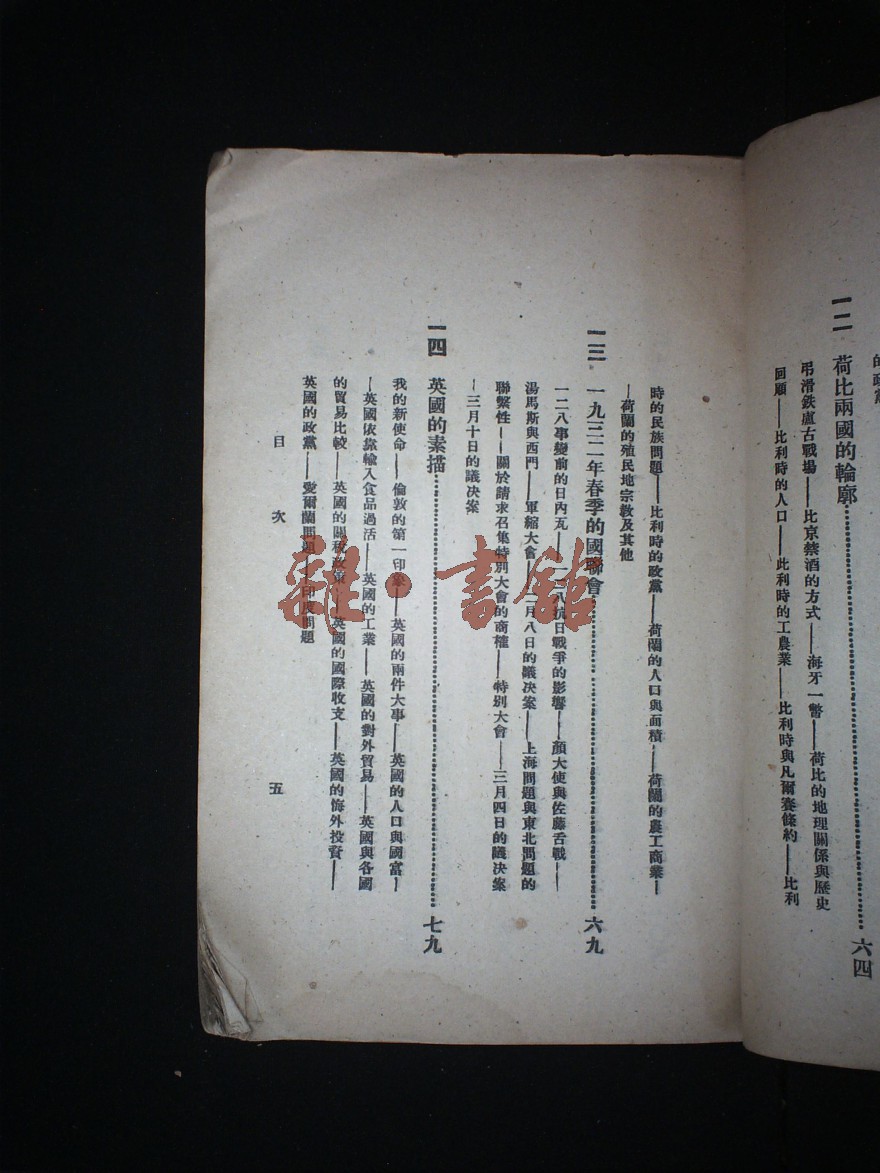 一二　荷比兩國的輪廓……六四
弔滑鉄盧古戰場——比京禁酒的方式——海牙一瞥——荷比的地理關係與歷史
回顧——比利時的人口——此利時的工農業——比利時與凡爾賽條約——比利
時的民族問題——比利時的政黨——荷蘭的人口與面積——荷蘭的農工商業—
—荷蘭的殖民地宗教及其他
一三　一九三二年春季的國聯會……六九
一二八事變前的日內瓦——一二八抗日戰爭的影響——顏大使與佐藤舌戰——
湯馬斯與西門——軍縮大會——月八日的議决案——上海問題與東北問題的
聯繫性——關於請求召集特別大會的商榷——特別大會——三月四日的議决案
—三月十日的議决案
一四　英國的素描……七九
我的新使命——倫敦的第一印象——英國的兩件大事——英國的人口與國富—
—英國依靠輸入食品過活——英國的工業——英國的對外貿易——英國與各國
的貿易比較——英國的關稅政策——英國的國際收支——英國的海外投資——
英國的政黨——愛爾蘭問題——印度問題
目次
五
雜·書館